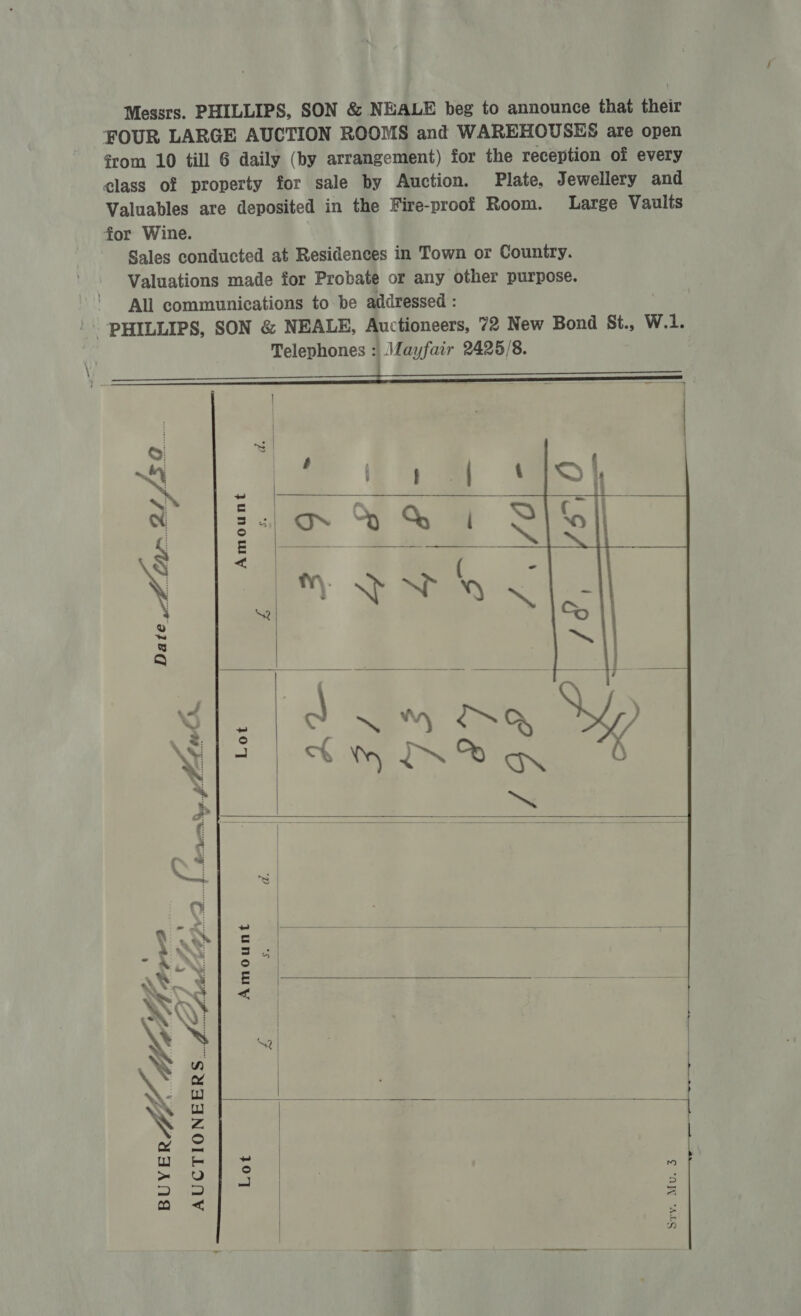 Messrs. PHILLIPS, SON & NEALE beg to announce that their
FOUR LARGE AUCTION ROOMS and WAREHOUSES are open
from 10 till 6 daily (by arrangement) for the reception of every
class of property for sale by Auction. Plate, Jewellery and
Valuables are deposited in the Fire-proof Room. Large Vaults
for Wine.
Sales conducted at Residences in Town or Country.
Valuations made for Probate or any other purpose.
All communications to be addressed :
PHILLIPS, SON & NEALE, Auctioneers, 72 New Bond St., W.1.
Telephones : Mayfair 2425/8.
BUYER Date 21/30
AUCTIONEERS Phillips
Lot Amount Lot Amount
£ s. d. £ s. d.
22 3 9 -
31 4 8 -
73 4 8 -
87 5 - -
198 1. 10 -
18. 15. 0
Srv. Mu. 3